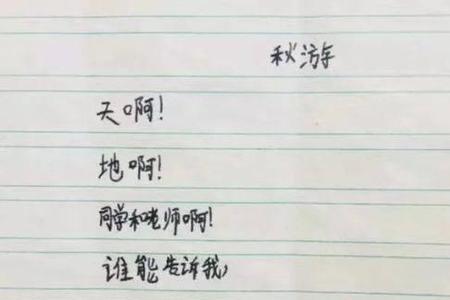 秋游
天啊!
地啊!
同学和老师啊!
谁能告诉我,